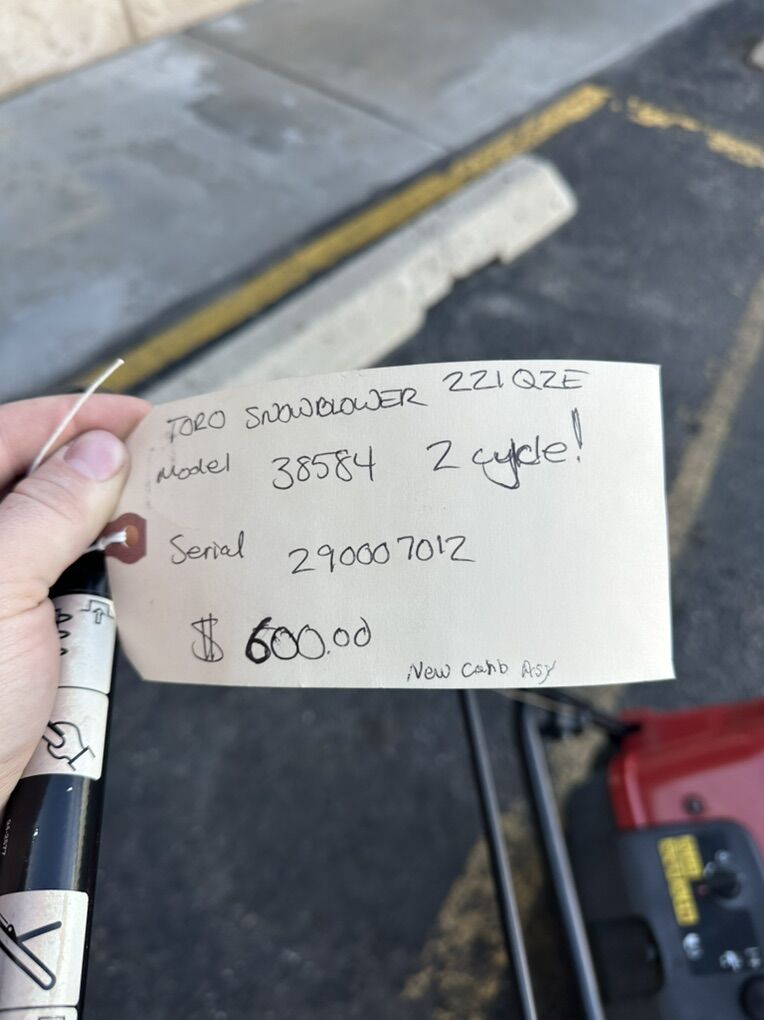 TORO SNOWBLOWER 221QZE
Model 38584 2 cycle!
Serial 290007012
$ 600.00
New Carb Asy